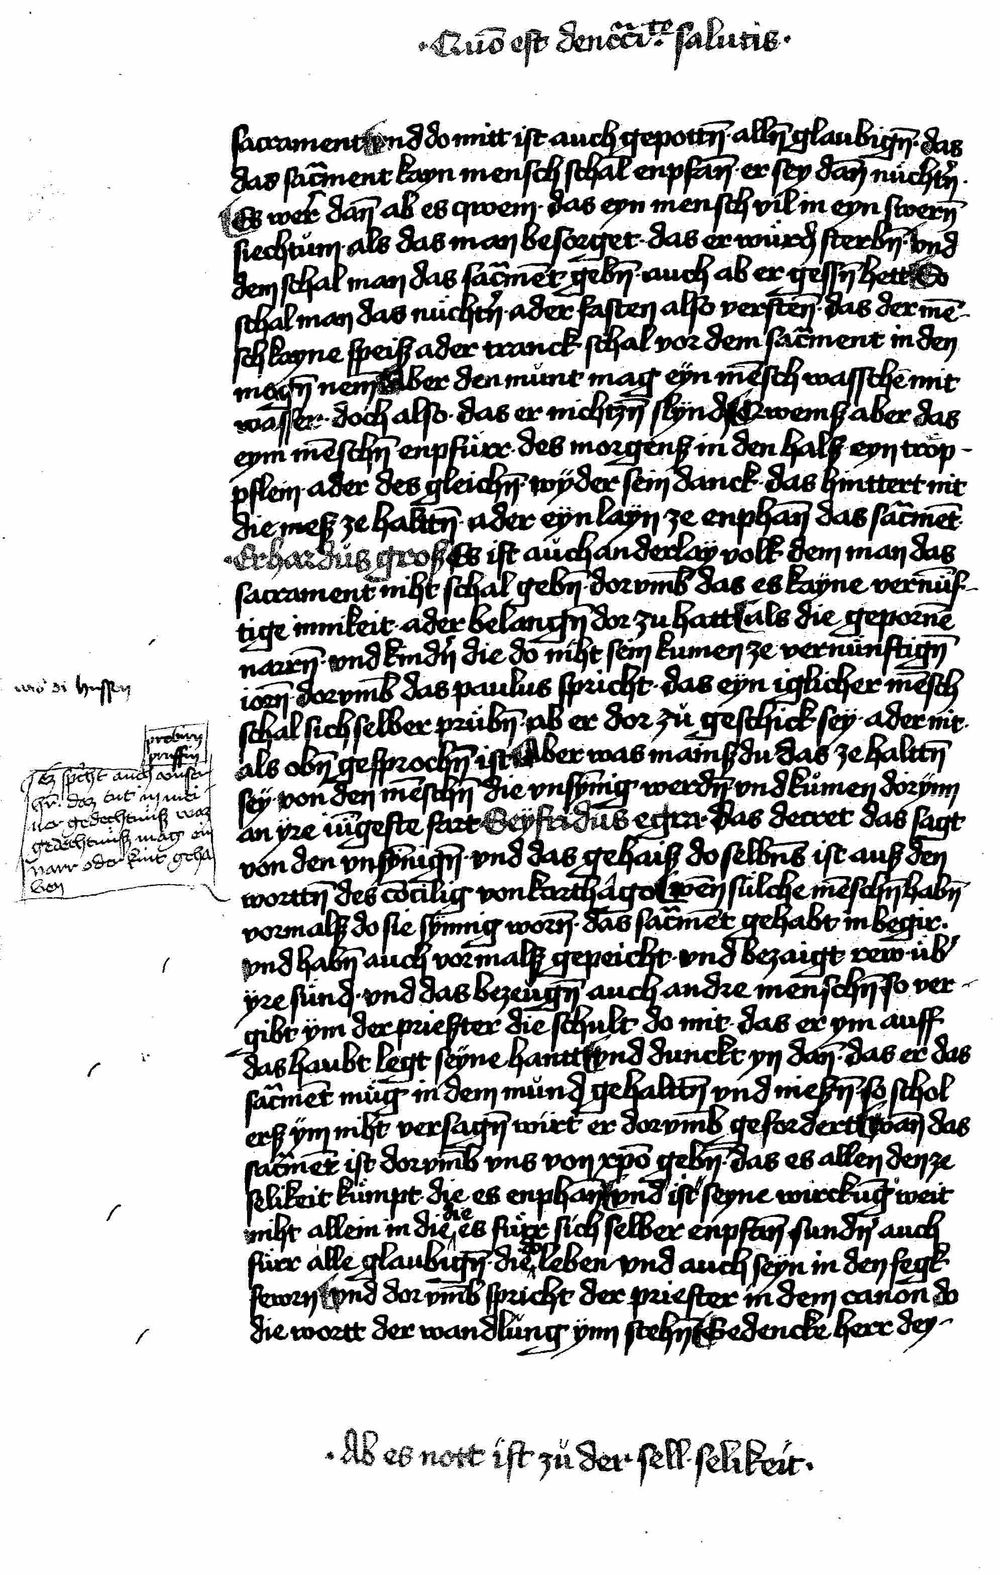 ·Quō est den̄cc̄i.te salutis·
sacrament vnd do mitt ist auch gepottn̄· alln̄ glaubign̄· das
das sac̄ment kayn mensch schal enpfan̄· er sey dan̄ nüchtn̄·
Es wer dan̄ ab es qwem· das eyn mensch vil in eyn swern̄
siechtům· als das man besorget· das er würd sterbn̄· vnd
dem schal man das sac̄mēt gebn̄· auch ab er gessn̄ hett So
schal man das nüchtn̄· ader fasten also versten̄· das der mē-
sch kayne speisz ader tranck schal vor dem sac̄ment in den
magn̄ nem̄ Aber den munt mag eyn mēsch wasschē mit
wasser· doch also· das er nichtzn̄ slynd Qwemsz aber das
eym mēschn̄ enpfürr· des morgensz in den halsz eyn tröp-
pflein· ader des gleichn̄ wyder sein danck· das hindert nit
die mesz ze halttn̄· ader eyn layn ze enphan̄ das sac̄mēt·
·Erhardüs grosz Es ist auch anderlay volk· dem man das
sacrament niht schal gebn̄· dorvmb̄ das es kayne vernüf-
tige innikeit· ader belangn̄ dor zu hatt als die gepornē
narrn̄· vnd kindn̄ die do niht sein kumen ze vernünftign̄
iorn̄· dorvmb̄ das paulus spricht· das eyn iglicher mēsch
wo di hussen
schal sich selber prübn̄· ab er dor zů geschick sey· ader nit·
als obn̄ gesprochn̄ ist Aber was mainsz du das ze halttn̄
sey· von den mēschn̄ die vnsyn̄ig werdn̄ vnd kümen dorynn
an yre iūgeste fart Seyfridus egra· Das decret das sagt
von den vnsyn̄ign̄· vnd das gehaisz do selbn̄s ist ausz den
worttn̄ des cōcilig von karthago wēn sülche mēschn̄ habn̄
vormalsz do sie synnig worn̄· das sac̄mēt gehabt in begir·
vnd habn̄ auch vormalsz gepeicht· vnd bezaigt rew· üb
yre sünd· vnd das bezeugn̄ auch andre menschn̄ so ver-
gibt ym der priester die schult do mit· das er ym auff
das haubt legt seyne hantt vnd dunckt yn dan̄· das er das
sac̄mēt müg in dem mund gehalttn̄ vnd nieszn̄ so schol
ersz ym niht versagn̄ würt er dorvmb̄ gefordert wan̄ das
sac̄mēt ist dorvmb̄ vns von xpō gebn̄· das es allen den ze
selikeit kümpt· die es enphan̄ vnd ist seyne wirckūg weit
niht allein in die die es fürr sich selber enpfan̄· sundn̄ auch
fürr alle glaubign̄· die do leben· vnd auch seyn in den fegk
fewrn vnd dorvmb̄ spricht der priester in dem canon̄ do
die wortt der wandlüng ynn stehn̄ Gedencke herr dey-
probirn
prüffen
Ez spcht auch unser
hr̄· daz tut in mei
ner gedechtnüsz waz
gedechtnüsz mag ein
narr oder kint geha
ben
·Ab es nott ist zů der sell· selikeit·